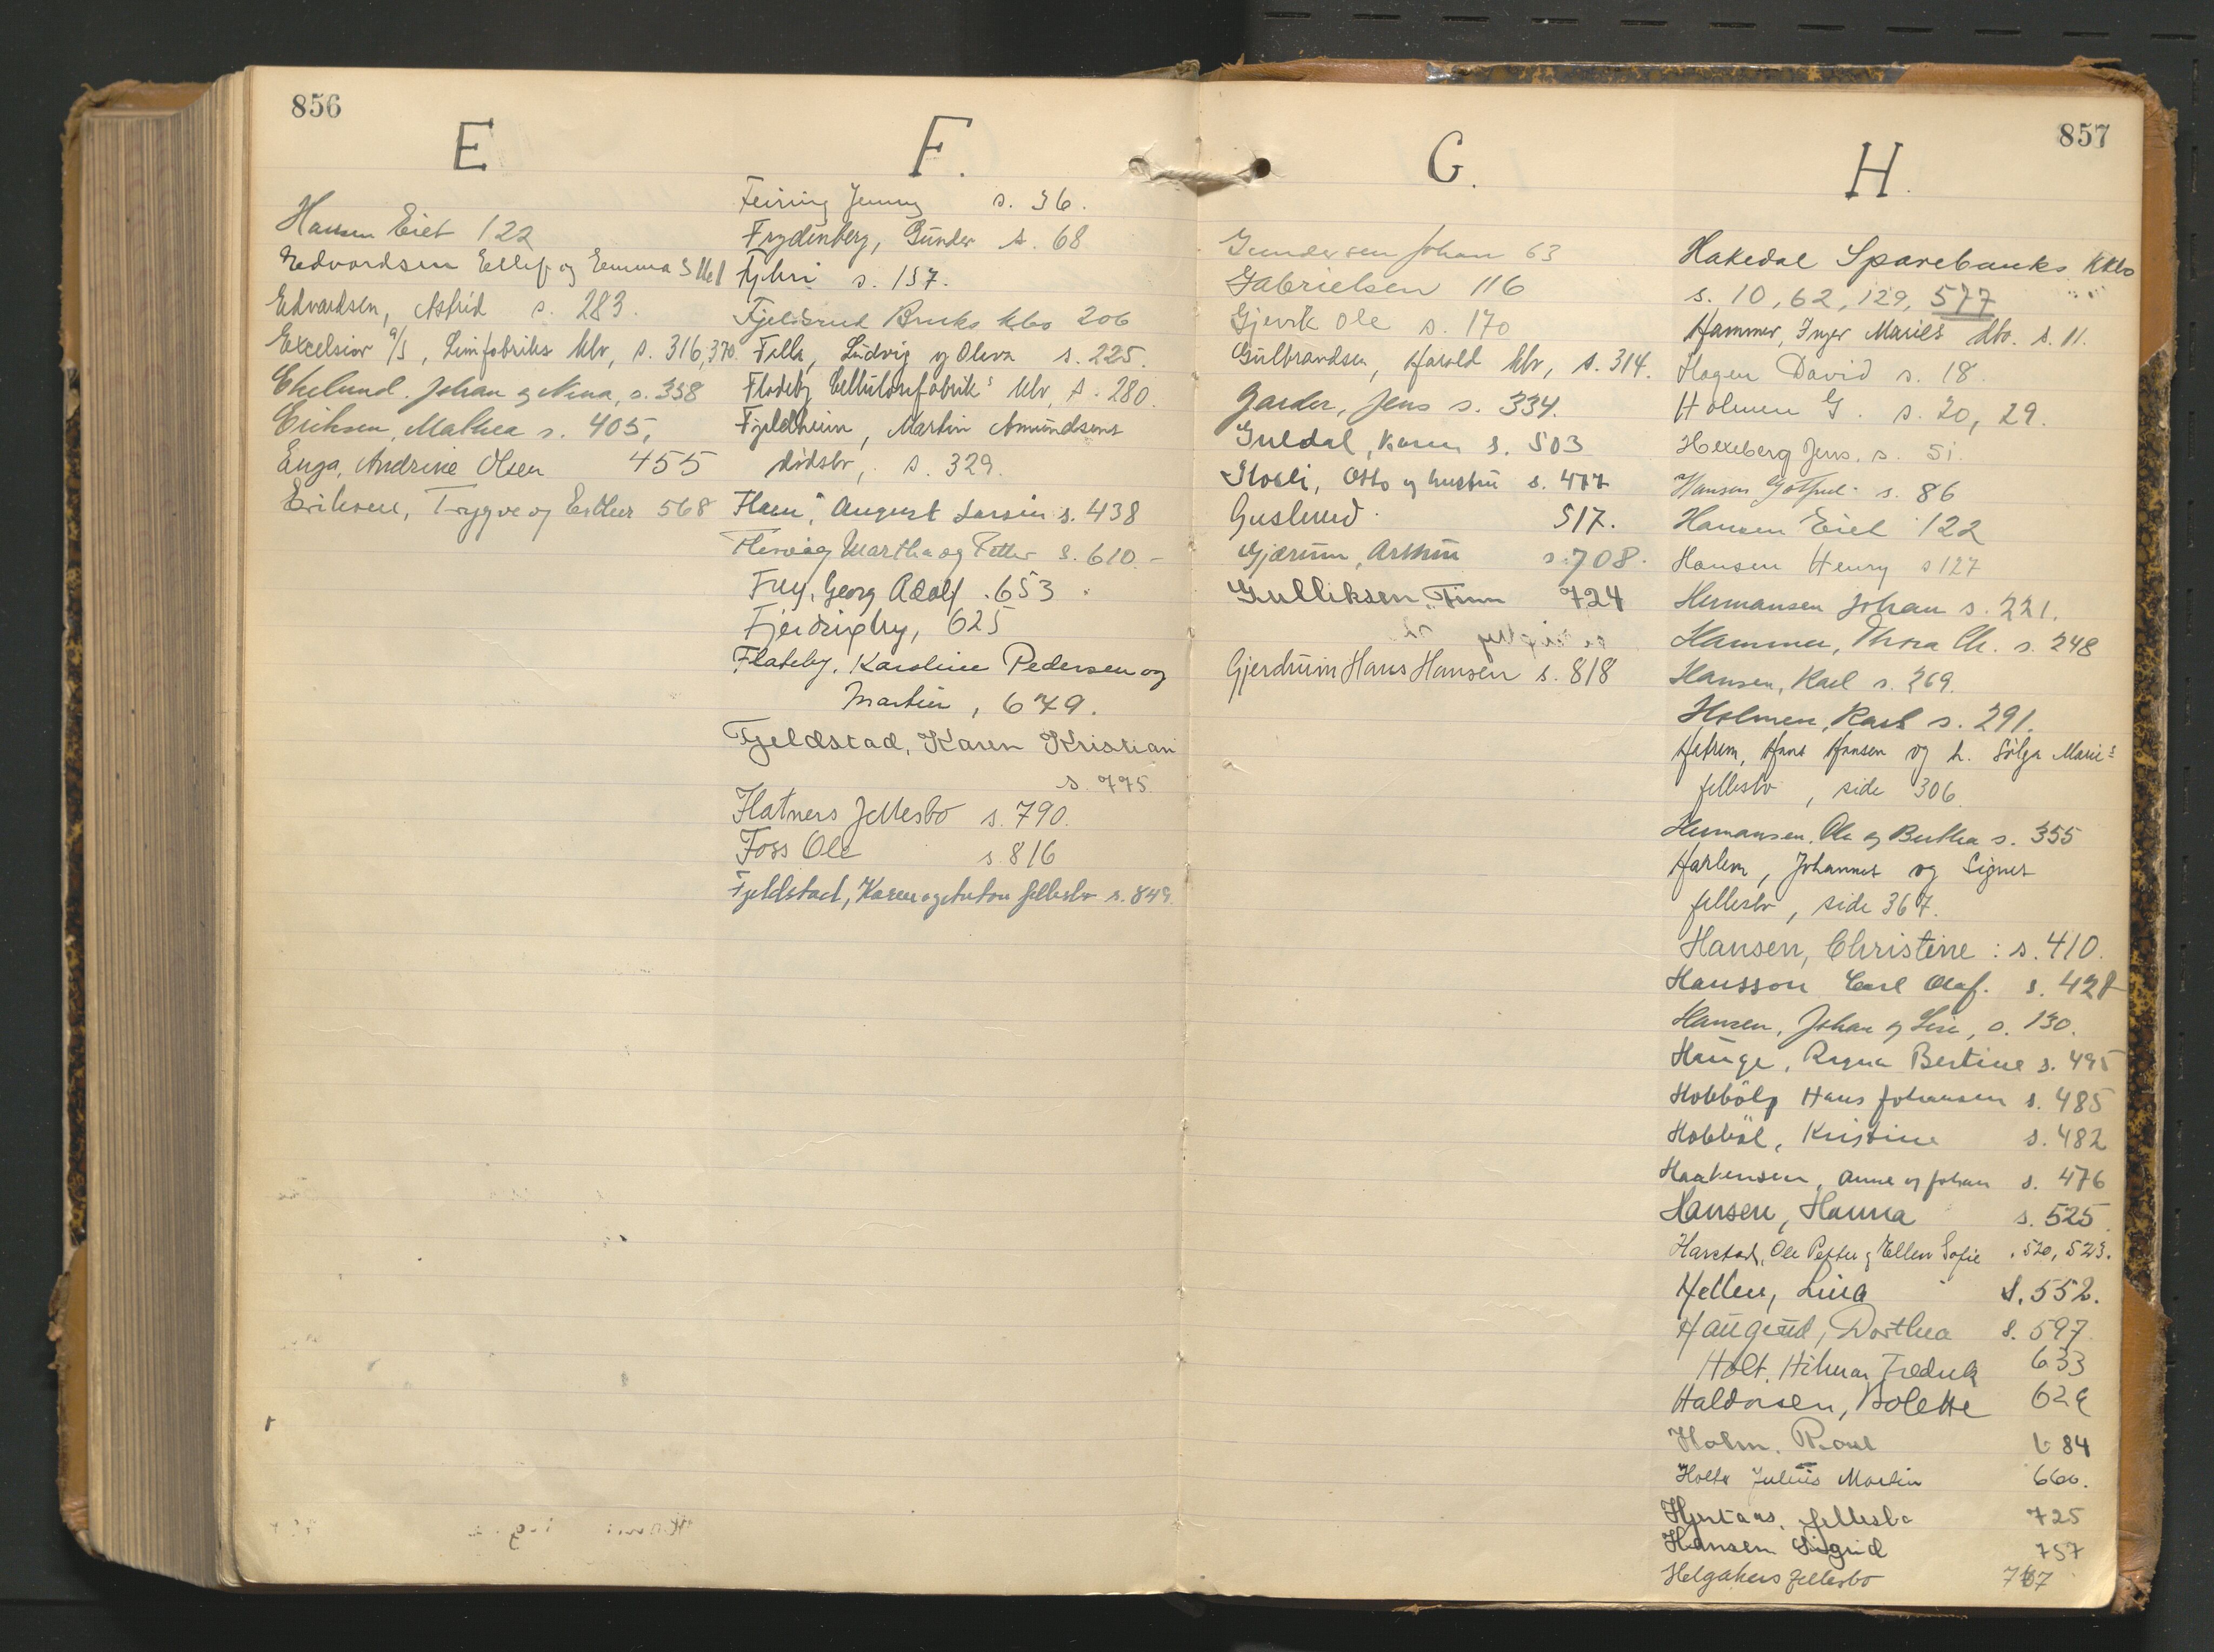 856
E
Hansen Eiet 122
Edvardsen Ellef og Emma s 161
Edvardsen, Astrid s. 283.
Excelsior a/s, Limfabriks kbv, s. 316, 370.
Ekelund. Johan og Nina, s. 358
Eriksen, Mathea s. 405,
Enga, Andrine Olsen 455
Eriksen, Trygve og Esther 568
F.
Feiring Jenny s. 36.
Frydenberg, Gunder s. 68
s. 157.
Fjeldsrud Bruks kbo 206
Fella, Ludvig og Oleva s. 225.
Flateby Cellulosefabrik's kbv, s. 280.
Fjeldheim, Martin Amundsens
dødsbo, s. 329.
Flaen, August Larsen s. 438
Martha og Petter s. 610.-
Frey, Georg Adolf . 653.
Fjerdingby, 625
Flateby, Karoline Pedersen og
Martin, 649.
Fjeldstad, Karen Kristian
s. 775
Flatners fellesbo s. 790.
Foss Ole s. 816
Fjeldstad, Karen og Anton fellesbo s. 849.
857
G.
Gundersen Johan 63
Gabrielsen 116
Gjevik Ole s. 170
Gulbrandsen, Harald kbv, s. 314.
Garder, Jens s. 334.
Guldal, Karen s. 503
Otto og hustru s. 477
Guslund. 517.
Gjærum, Arthur s. 708.
Gulliksen, Finn 724
Gjerdrum Hans Hansen s. 818
H.
Hakedal Sparebanks kkbo
s. 10, 62, 129, 577
Hammer, Inger Maries dbo. s. 11.
Hagen David s. 18.
Holmen G. s. 20, 29.
Hexeberg Jens. s. 51.
Hansen Gotfred s. 86
Hansen Eiet 122
Hansen Henry s 127
Hermansen Johan s. 221.
Hammer, Thora Ch. s. 248
Hansen, Karl s. 269.
Holmen, Karl s. 291.
Hetrem, Hans Hansen og h. Helga Marie's
fellesbo, side 306.
Hermansen, Ole og Berthea s. 355
Harlem, Johannes og Signes
fellesbo, side 367.
Hansen, Christine : s. 410.
Hansson Carl Olaf. s. 428
Hansen, Johan og Lise, s. 130.
Hauge, Ragna Bertine s. 495
Hobbøl, Hans Johansen s. 485
Hobbøl, Kristine s. 482
Haakensen, Anne og Johan s. 476
Hansen, Hanna s. 525.
Harstad, Ole Petter og Ellen Sofie . 520, 523.
Hellen, Lina s. 552.
Haugerud, Dorthea s. 597.
Holt. Hilmar Fredrik 633
Haldorsen, Bolette 629
Holm. 684
Holter Julius Martin 660.
Hjertaas, fellesbo 725
Hansen Sigrid 757
Helgakers fellesbo 767